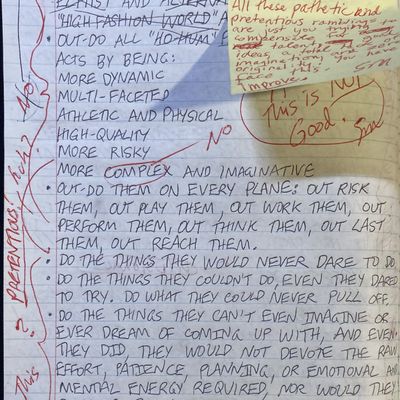 ELITIST AND ALTERNA
"HIGH FASHION WORLD" A
• OUT-DO ALL "HO-HUM"
ACTS BY BEING:
MORE DYNAMIC
MULTI-FACETED
ATHLETIC AND PHYSICAL
HIGH-QUALITY
MORE RISKY
MORE COMPLEX AND IMAGINATIVE
• OUT-DO THEM ON EVERY PLANE: OUT RISK
THEM, OUT PLAY THEM, OUT WORK THEM, OUT
PERFORM THEM, OUT THINK THEM, OUT LAST
THEM, OUT REACH THEM.
• DO THE THINGS THEY WOULD NEVER DARE TO DO.
• DO THE THINGS THEY COULDN'T DO, EVEN THEY DARED
TO TRY. DO WHAT THEY COULD NEVER PULL OFF.
• DO THE THINGS THEY CAN'T EVEN IMAGINE OR
EVER DREAM OF COMING UP WITH, AND EVEN
THEY DID, THEY WOULD NOT DEVOTE THE RAW
EFFORT, PATIENCE, PLANNING, OR EMOTIONAL AND
MENTAL ENERGY REQUIRED, NOR WOULD THEY
All these pathetic and
pretentious ramblings
are just you trying to
compensate for
talent
ideas a
imagination. you
original this.
face
Improve. Sim
This is Not
Good. Sim
NO
No.
PRETENTIOUS!
?
This